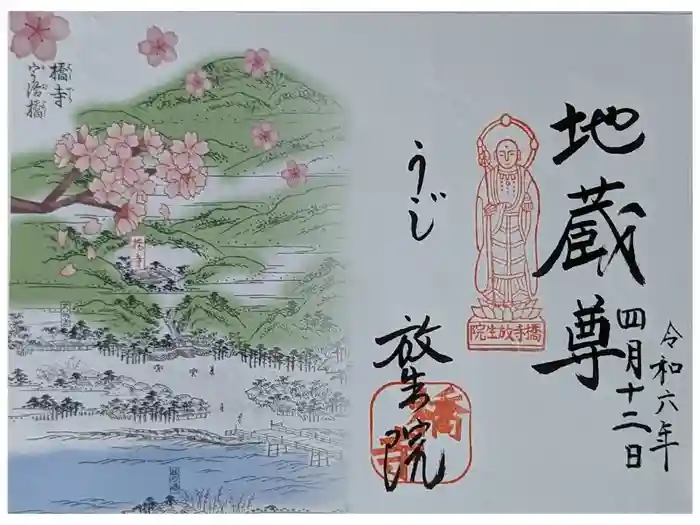 橋寺
宇治橋
地蔵尊
令和六年
四月十二日
うじ
放生院
橋寺放生院
橋寺
橋寺